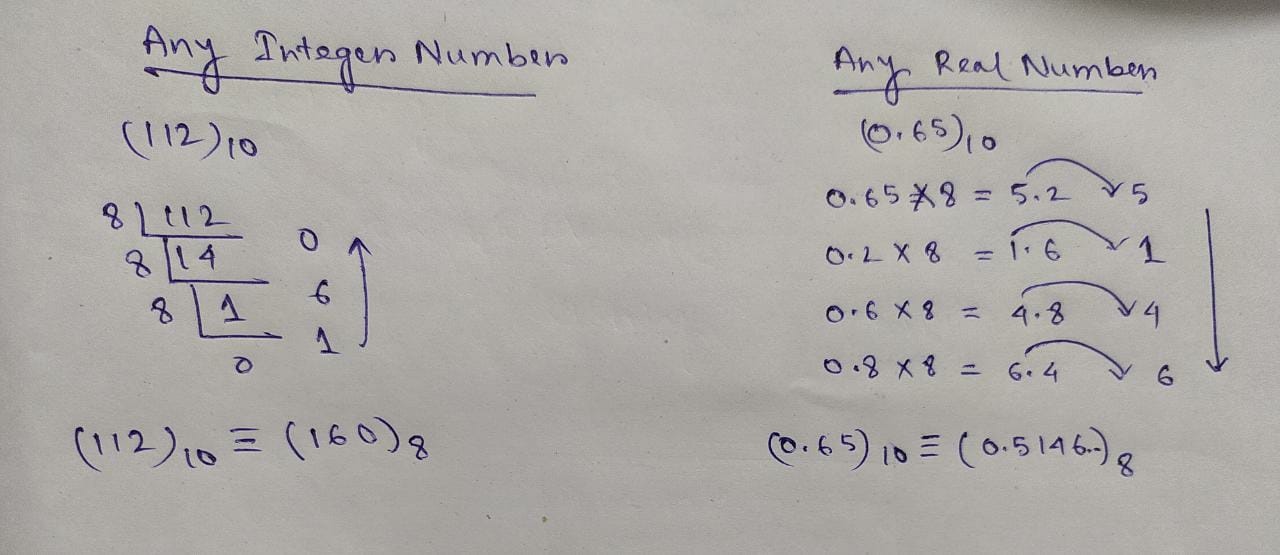 Any Integer Number
(112)10
8 112
8 14 0
8 1 6
0 1
(112)10 ≡ (160)8
Any Real Number
(0.65)10
0.65 × 8 = 5.2 5
0.2 × 8 = 1.6 1
0.6 × 8 = 4.8 4
0.8 × 8 = 6.4 6
(0.65)10 ≡ (0.5146..)8